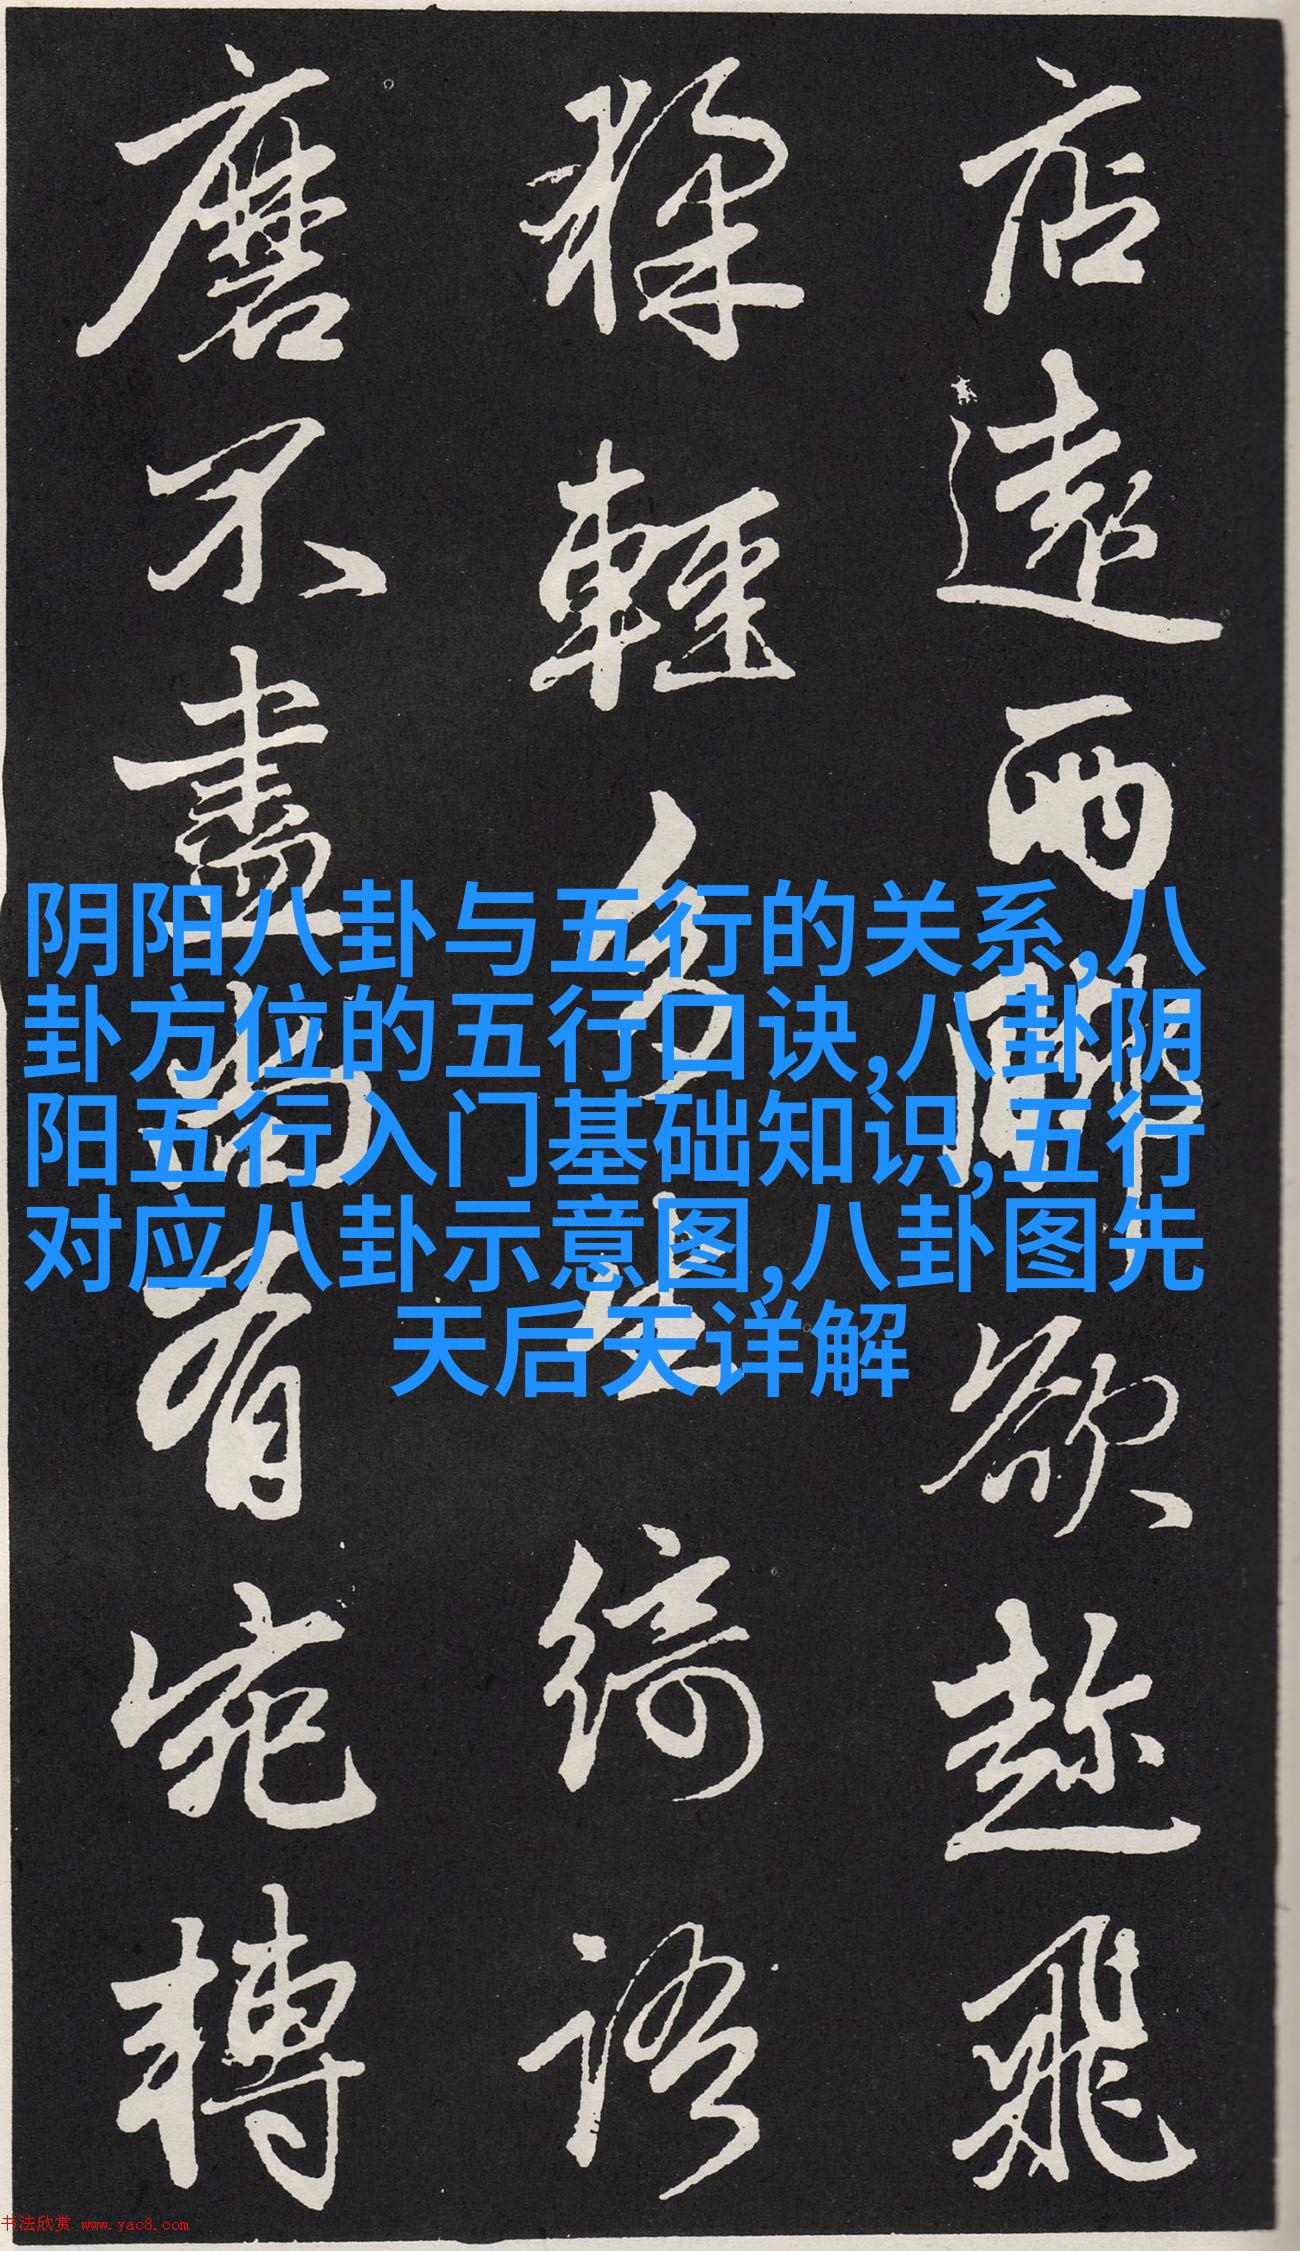 店遠两脚欲趂飛
猱輕多生綺語
磨不盡尚有宛轉
阴阳八卦与五行的关系,八
卦方位的五行口诀,八卦阴
阳五行入门基础知识,五行
对应八卦示意图,八卦图先
天后天详解
书法欣赏 www.yac8.com